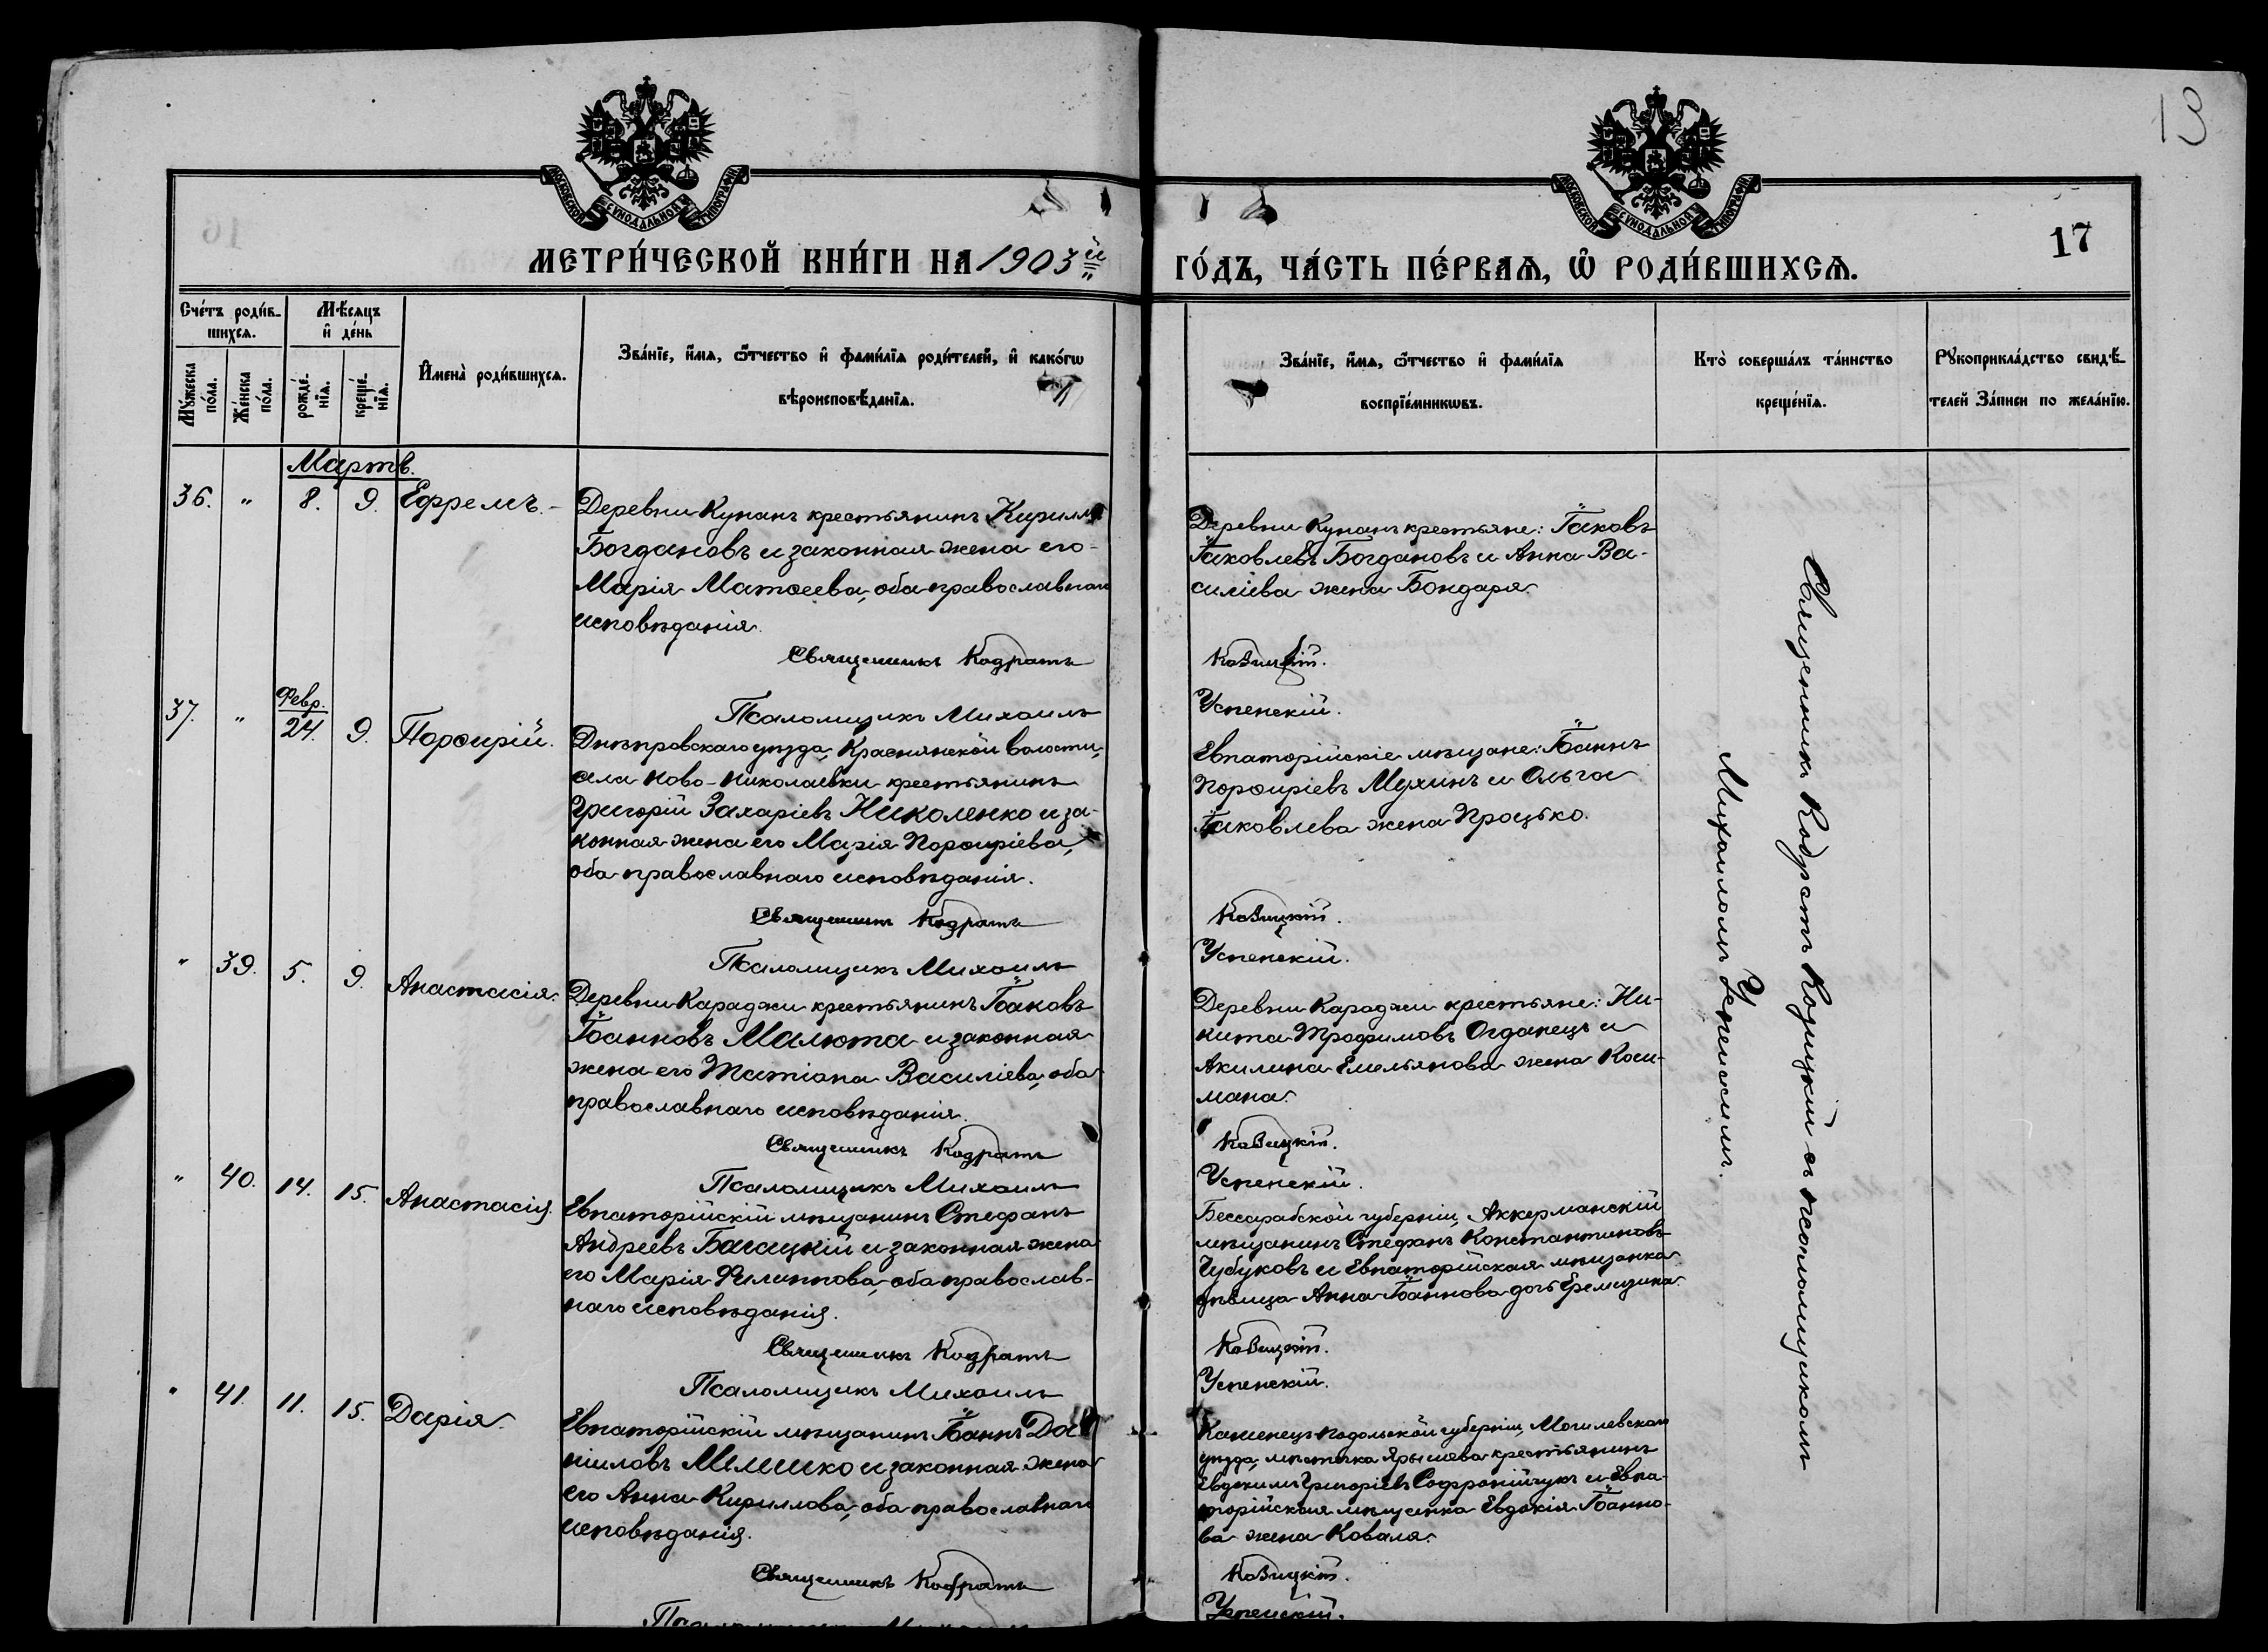 13
МОСКОВСКОЙ СУНОДАЛЬНОЙ ТИПОГРАФІИ
МОСКОВСКОЙ СУНОДАЛЬНОЙ ТИПОГРАФІИ
17
МЕТРИ́ЧЕСКОЙ КНИ́ГИ НА 1903й
ГО́ДЪ, ЧА́СТЬ ПЕ́РВАѦ, Ѡ҆ РОДИ́ВШИХСѦ.
Сче́тъ роди́в-
шихсѧ.
Мꙋ́жеска по́ла.
Же́нска по́ла.
Мѣ́сяцъ
и҆ де́нь
рожде́-
нїѧ.
креще́-
нїѧ.
И҆мена̀ роди́вшихсѧ.
Зва́нїе, и҆́мѧ, ѻ҆́тчество и҆ фами́лїѧ роди́телей, и҆ како́гѡ
вѣроисповѣ́данїѧ.
Зва́нїе, и҆́мѧ, ѻ҆́тчество и҆ фами́лїѧ
воспрїе́мникѡвъ.
Кто̀ соверша́лъ та́инство
креще́нїѧ.
Рꙋкоприкла́дство свидѣ́-
телей За́писи по жела́нїю.
Мартъ.
36. " 8. 9. Ефремъ.-
Деревни Кунанъ крестьянинъ Кириллъ
Богдановъ и законная жена его
Марія Матѳеева, оба православнаго
исповѣданія.
Священникъ Кодратъ
Псаломщикъ Михаилъ
Деревни Кунанъ крестьяне: Іаковъ
Іаковлевъ Богдановъ и Анна Ва-
силіева жена Бондаря.
Козицкій.
Успенскій.
37. " Февр. 24. 9. Порѳирій.
Днѣпровскаго уѣзда, Краснянской волости,
села Ново-Николаевки крестьянинъ
Григорій Захаріевъ Николенко и за-
конная жена его Марія Порѳиріева,
оба православнаго исповѣданія.
Священникъ Кодратъ
Псаломщикъ Михаилъ
Евпаторійскіе мѣщане: Іоаннъ
Порѳиріевъ Мухинъ и Ольга
Іаковлева жена Процько.
Козицкій.
Успенскій.
" 39. 5. 9. Анастасія.
Деревни Караджи крестьянинъ Іаковъ
Іоанновъ Малюта и законная
жена его Татіана Василіева, оба
православнаго исповѣданія.
Священникъ Кодратъ
Псаломщикъ Михаилъ
Деревни Караджи крестьяне: Ни-
кита Трофимовъ Огданецъ и
Акилина Емельянова жена Коси-
мана.
Козицкій.
Успенскій.
" 40. 14. 15. Анастасія.
Евпаторійскій мѣщанинъ Стефанъ
Андреевъ Багацкій и законная жена
его Марія Филиппова, оба православ-
наго исповѣданія.
Священникъ Кодратъ
Псаломщикъ Михаилъ
Бессарабской губерніи, Аккерманскій
мѣщанинъ Стефанъ Константиновъ
Чубуковъ и Евпаторійская мѣщанка
дѣвица Анна Іоаннова дочь Еремизина.
Козицкій.
Успенскій.
" 41. 11. 15. Дарія.
Евпаторійскій мѣщанинъ Іоаннъ Да-
ніиловъ Мелешко и законная жена
его Анна Кириллова, оба православнаго
исповѣданія.
Священникъ Кодратъ
Каменецъ Подольской губерніи, Могилевскаго
уѣзда, мѣстечка Ярышева крестьянинъ
Евдокимъ Григоріевъ Софронійчукъ и Евпа-
торійская мѣщанка Евдокія Іоанно-
ва жена Коваля.
Козицкій.
Успенскій.
Священникъ Кодратъ Козицкій съ псаломщикомъ
Михаиломъ Успенскимъ.